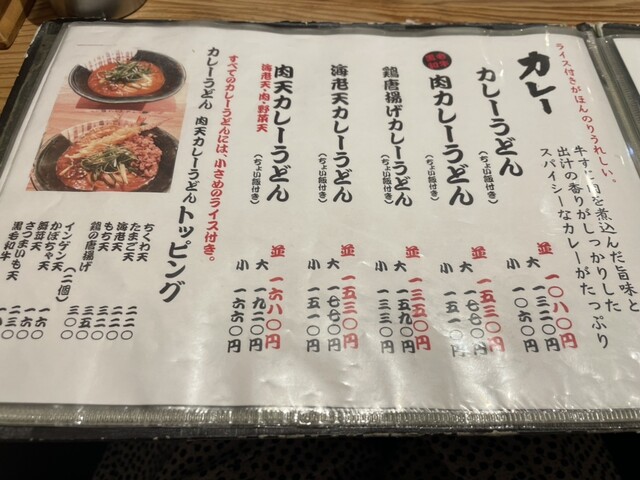 ライス付きがほんのりうれしい。
カレー
牛すじ肉を煮込んだ旨味と
出汁の香りがしっかりした
スパイシーなカレーがたっぷり
カレーうどん
(ちょい飯付き)
並 一〇八〇円
大 一三二〇円
小 一〇六〇円
肉カレーうどん
(ちょい飯付き)
並 一五三〇円
大 一七七〇円
小 一五一〇円
鶏唐揚げカレーうどん
(ちょい飯付き)
並 一三五〇円
大 一五九〇円
小
海老天カレーうどん
(ちょい飯付き)
並 一五三〇円
大 一七七〇円
小 一五一〇円
肉天カレーうどん
(ちょい飯付き)
海老天・肉・野菜天
並 一六八〇円
大 一九二〇円
小 一六六〇円
すべてのカレーうどんには、小さめのライス付き。
カレーうどん 肉天カレーうどん
トッピング
ちくわ天
たまご天
海老天
もち天
鶏の唐揚げ 三五〇
インゲン天(二個) 三〇〇
かぼちゃ天
舞茸天
さつまいも天
黒毛和牛